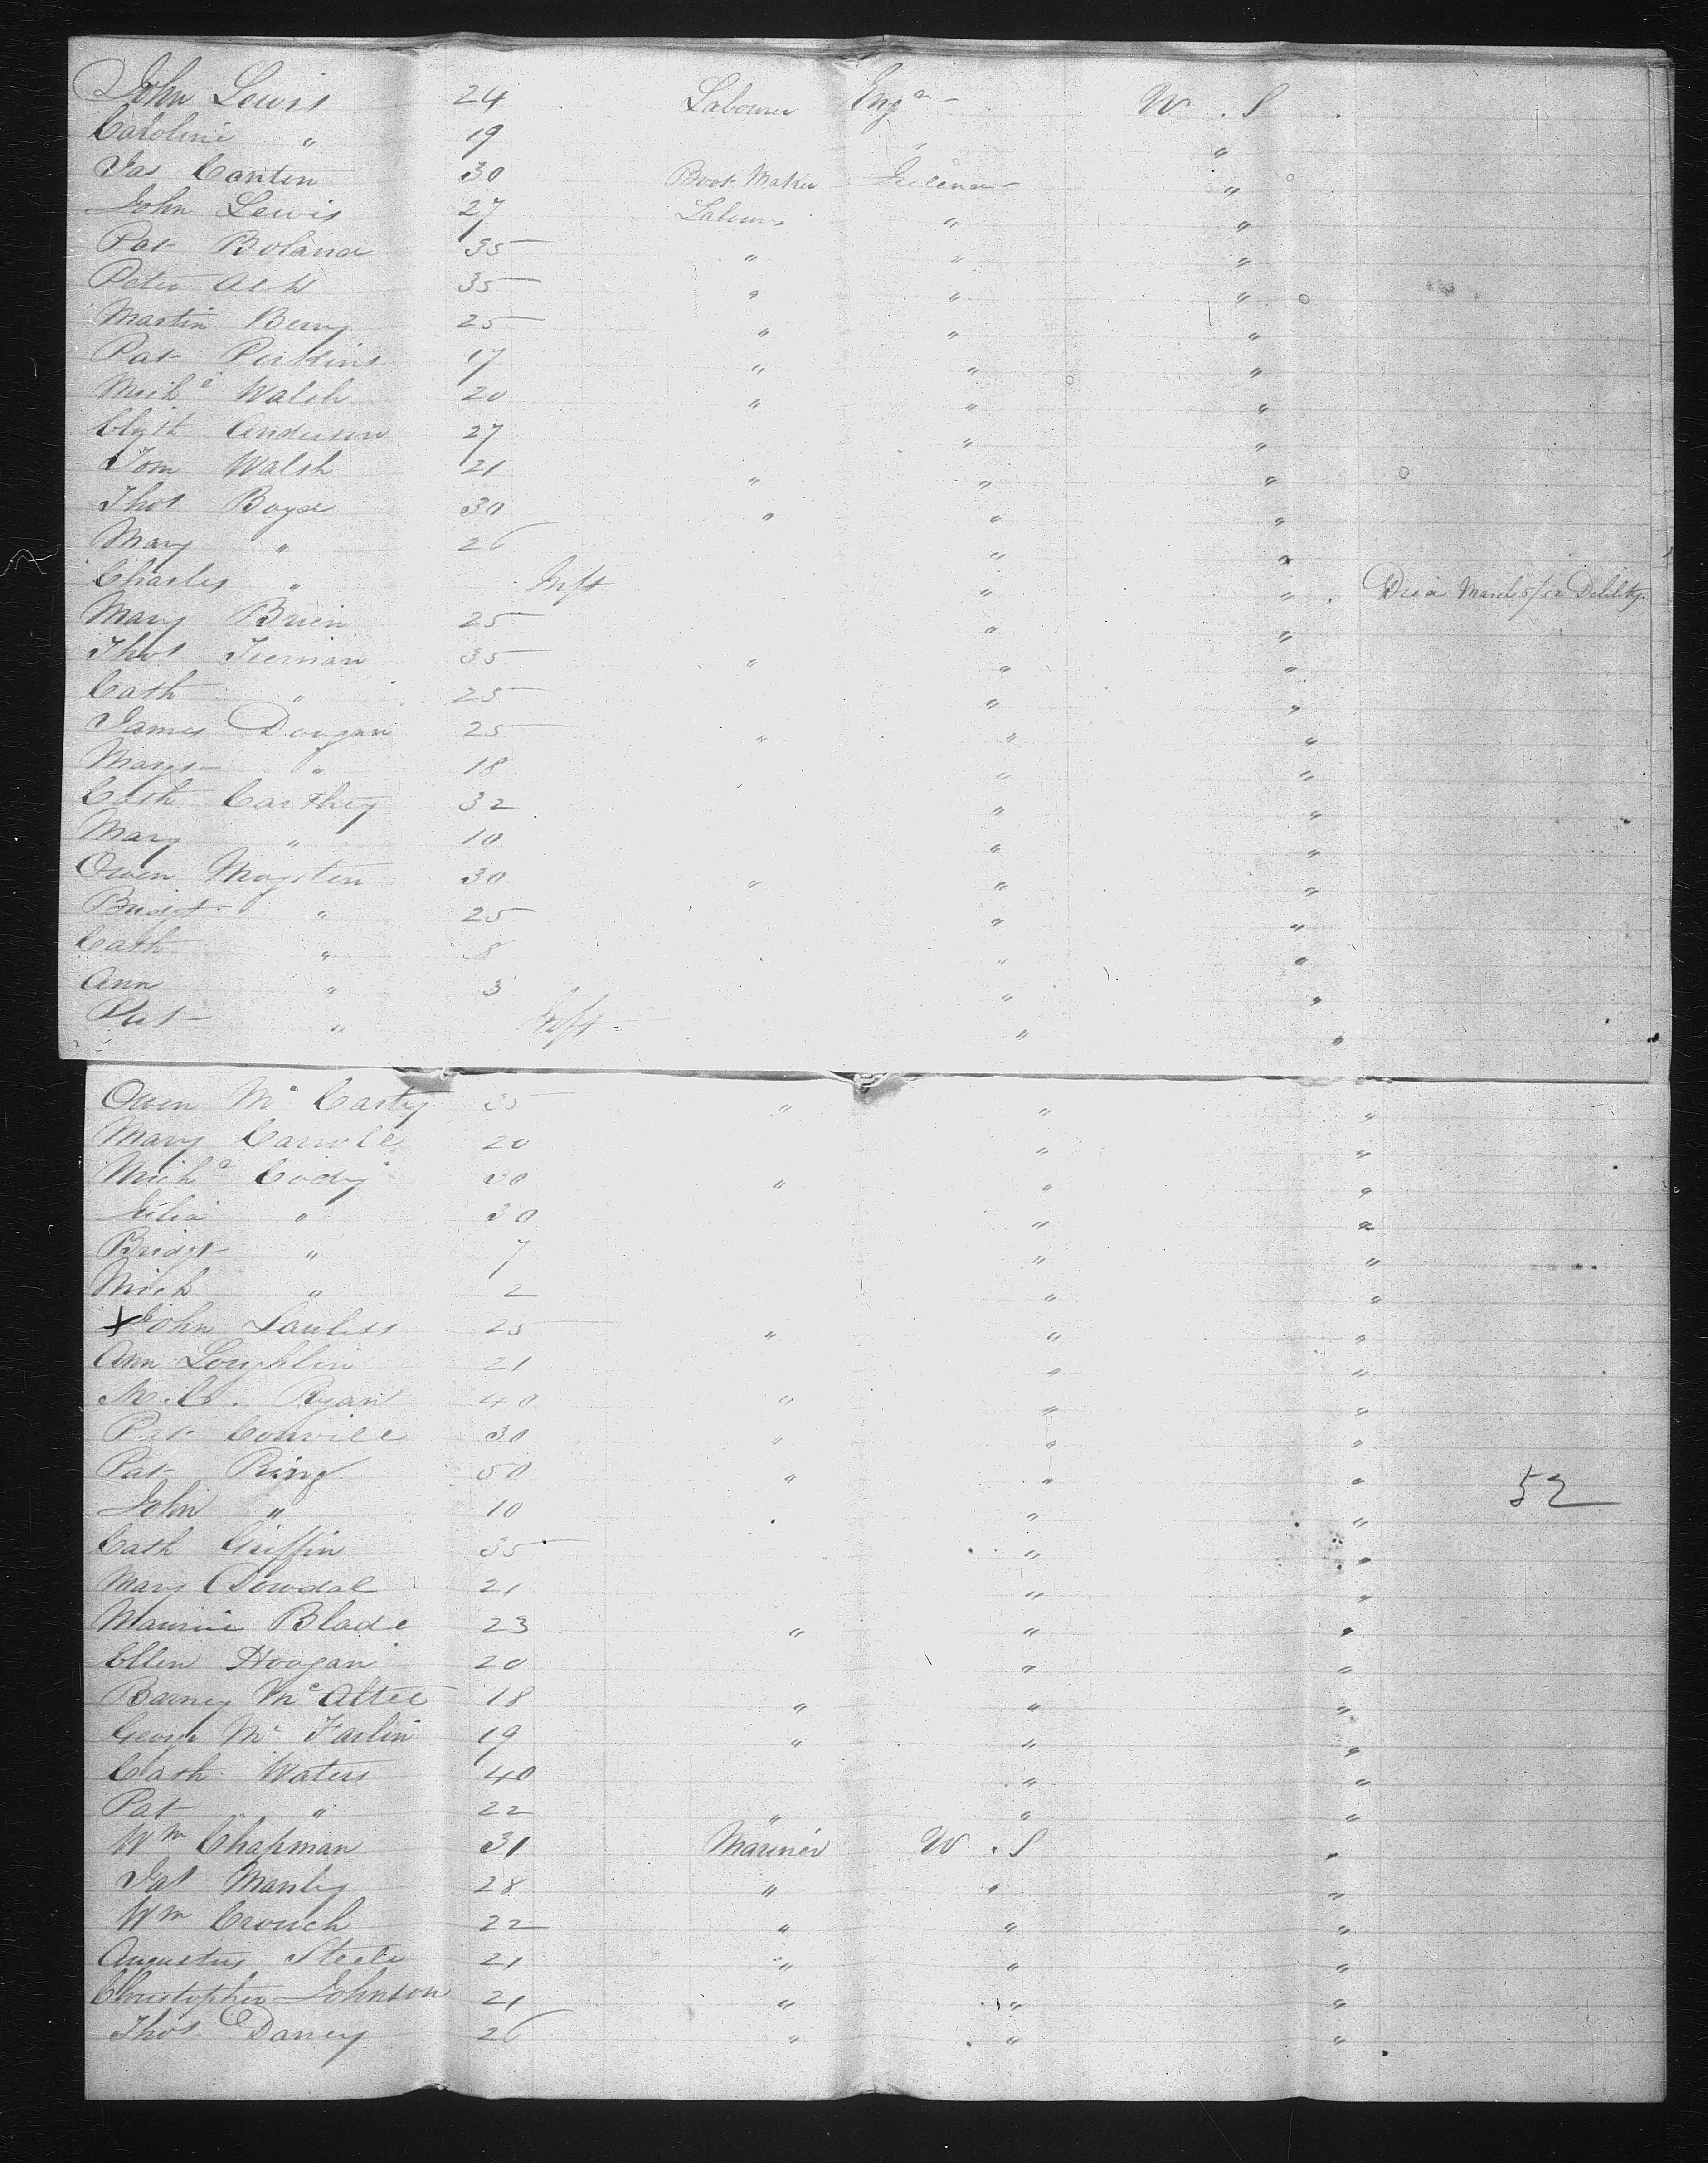 John Lewis 24 Labourer Eng^d - U . S
Caroline " 19 " "
Jas Canton 30 Boot Maker Ireland - "
John Lewis 27 Labourer " "
Pat Boland 35 " " "
Peter Ash 35 " " "
Martin Berry 25 " " "
Pat Perkins 17 " " "
Mich^l Walsh 20 " " "
Anderson 27 " "
Tom Walsh 21 " " "
Thos Boyd 30 " " "
Mary " 26 " "
Charles " Inft " " Died March 5/52 Debility
Mary Brien 25 " "
Thos Tiernan 35 " " "
Cath " 25 " "
James Doogan 25 " " "
Margt " 18 " "
Cath Carthey 32 " "
Mary " 10 " "
Owen 30 " " "
Bridgt " 25 " "
Cath " 8 " "
Ann " 3 " "
Pat " Inft " "
Owen Mc Carty 35 " " "
Mary Carrole 20 " "
Mich^l Cody 30 " " "
Julia " 30 " "
Bridgt " 7 " "
Mich " 2 " "
x John Lawless 25 " " "
Ann Loughlin 21 " "
M. C. Ryan 40 " " "
Pat Conville 30 " " "
Pat Ring 50 " " "
John " 10 " "
52
Cath Griffin 35 " "
Mary Dowdal 21 " "
Maurice Blade 23 " " "
Ellen Hoogan 20 " "
Barney Mc Attee 18 " " "
George Mc Farlin 19 " " "
Cath Waters 40 " "
Pat " 22 " " "
Wm Chapman 31 Mariner U . S "
Jas Manley 28 " " "
Wm Crouch 22 " " "
Augustus Steele 21 " " "
Christopher Johnson 21 " " "
Thos Darcey 26 " " "